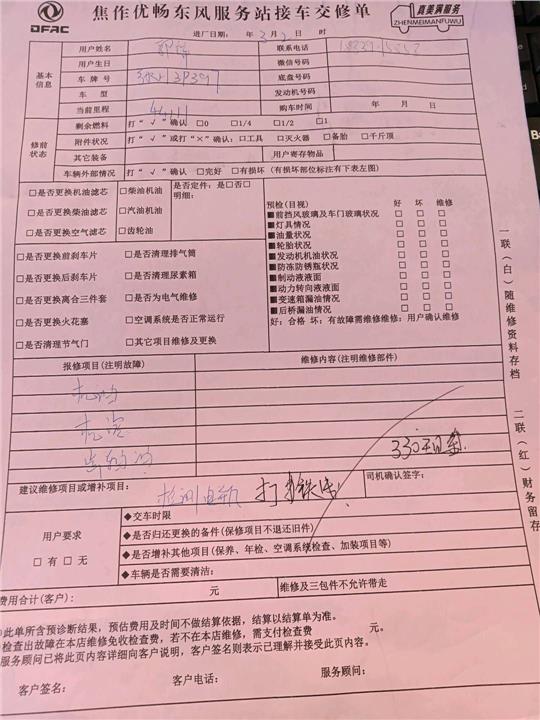 DFAC
焦作优畅东风服务站接车交修单
真美满服务
ZHENMEIMANFUWU
进厂日期： 年 3 月 2 日
基本信息
用户姓名 联系电话
用户生日 微信号码
车牌号 底盘号码
车型 发动机号码
当前里程 44111 购车时间 年 月 日
修前状态
剩余燃料 打“√”确认 □0 □1/4 □1/2 □1
附件状况 打“√”或打“×”确认：□工具 □灭火器 □备胎 □千斤顶
其它装备 用户寄存物品
车辆外部情况 打“√”确认 □完好 □有损坏（有损坏部位标注有下表左图）
□是否更换机油滤芯 □柴油机油 是否定件：是□否□
□是否更换柴油滤芯 □汽油机油 明细：
□是否更换空气滤芯 □齿轮油
□是否更换前刹车片 □是否清理排气筒
□是否更换后刹车片 □是否清理尿素箱
□是否更换离合三件套 □是否为电气维修
□是否更换火花塞 □空调系统是否正常运行
□是否清理节气门 □其它项目维修及更换
预检（目视） 好 坏 维修
■前挡风玻璃及车门玻璃状况 □ □ □
■灯具情况 □ □ □
■油量状况 □ □ □
■轮胎状况 □ □ □
■发动机机油状况 □ □ □
■防冻防锈瓶状况 □ □ □
■制动液液面 □ □ □
■动力转向液液面 □ □ □
■变速箱漏油情况 □ □ □
■后桥漏油情况 □ □ □
好：合格 坏：有故障需维修维修：用户确认维修
报修项目（注明故障） 维修内容（注明维修部件）
机油
机滤
齿轮油
建议维修项目或增补项目： 司机确认签字：
用户要求
□有 □无
◆交车时限
◆是否归还更换的备件（保修项目不退还旧件）
◆是否增补其他项目（保养、年检、空调系统检查、加装项目等）
◆车辆是否需要清洁：
费用合计（客户）： 元 维修及三包件不允许带走
此单所含预诊断结果，预估费用及时间不做结算依据，结算以结算单为准。
检查出故障在本店维修免收检查费，若不在本店维修，需支付检查费 元。
服务顾问已将此页内容详细向客户说明，客户签名则表示已理解并接受此页内容。
客户签名： 客户电话： 服务顾问：
一联（白）随维修资料存档
二联（红）财务留存